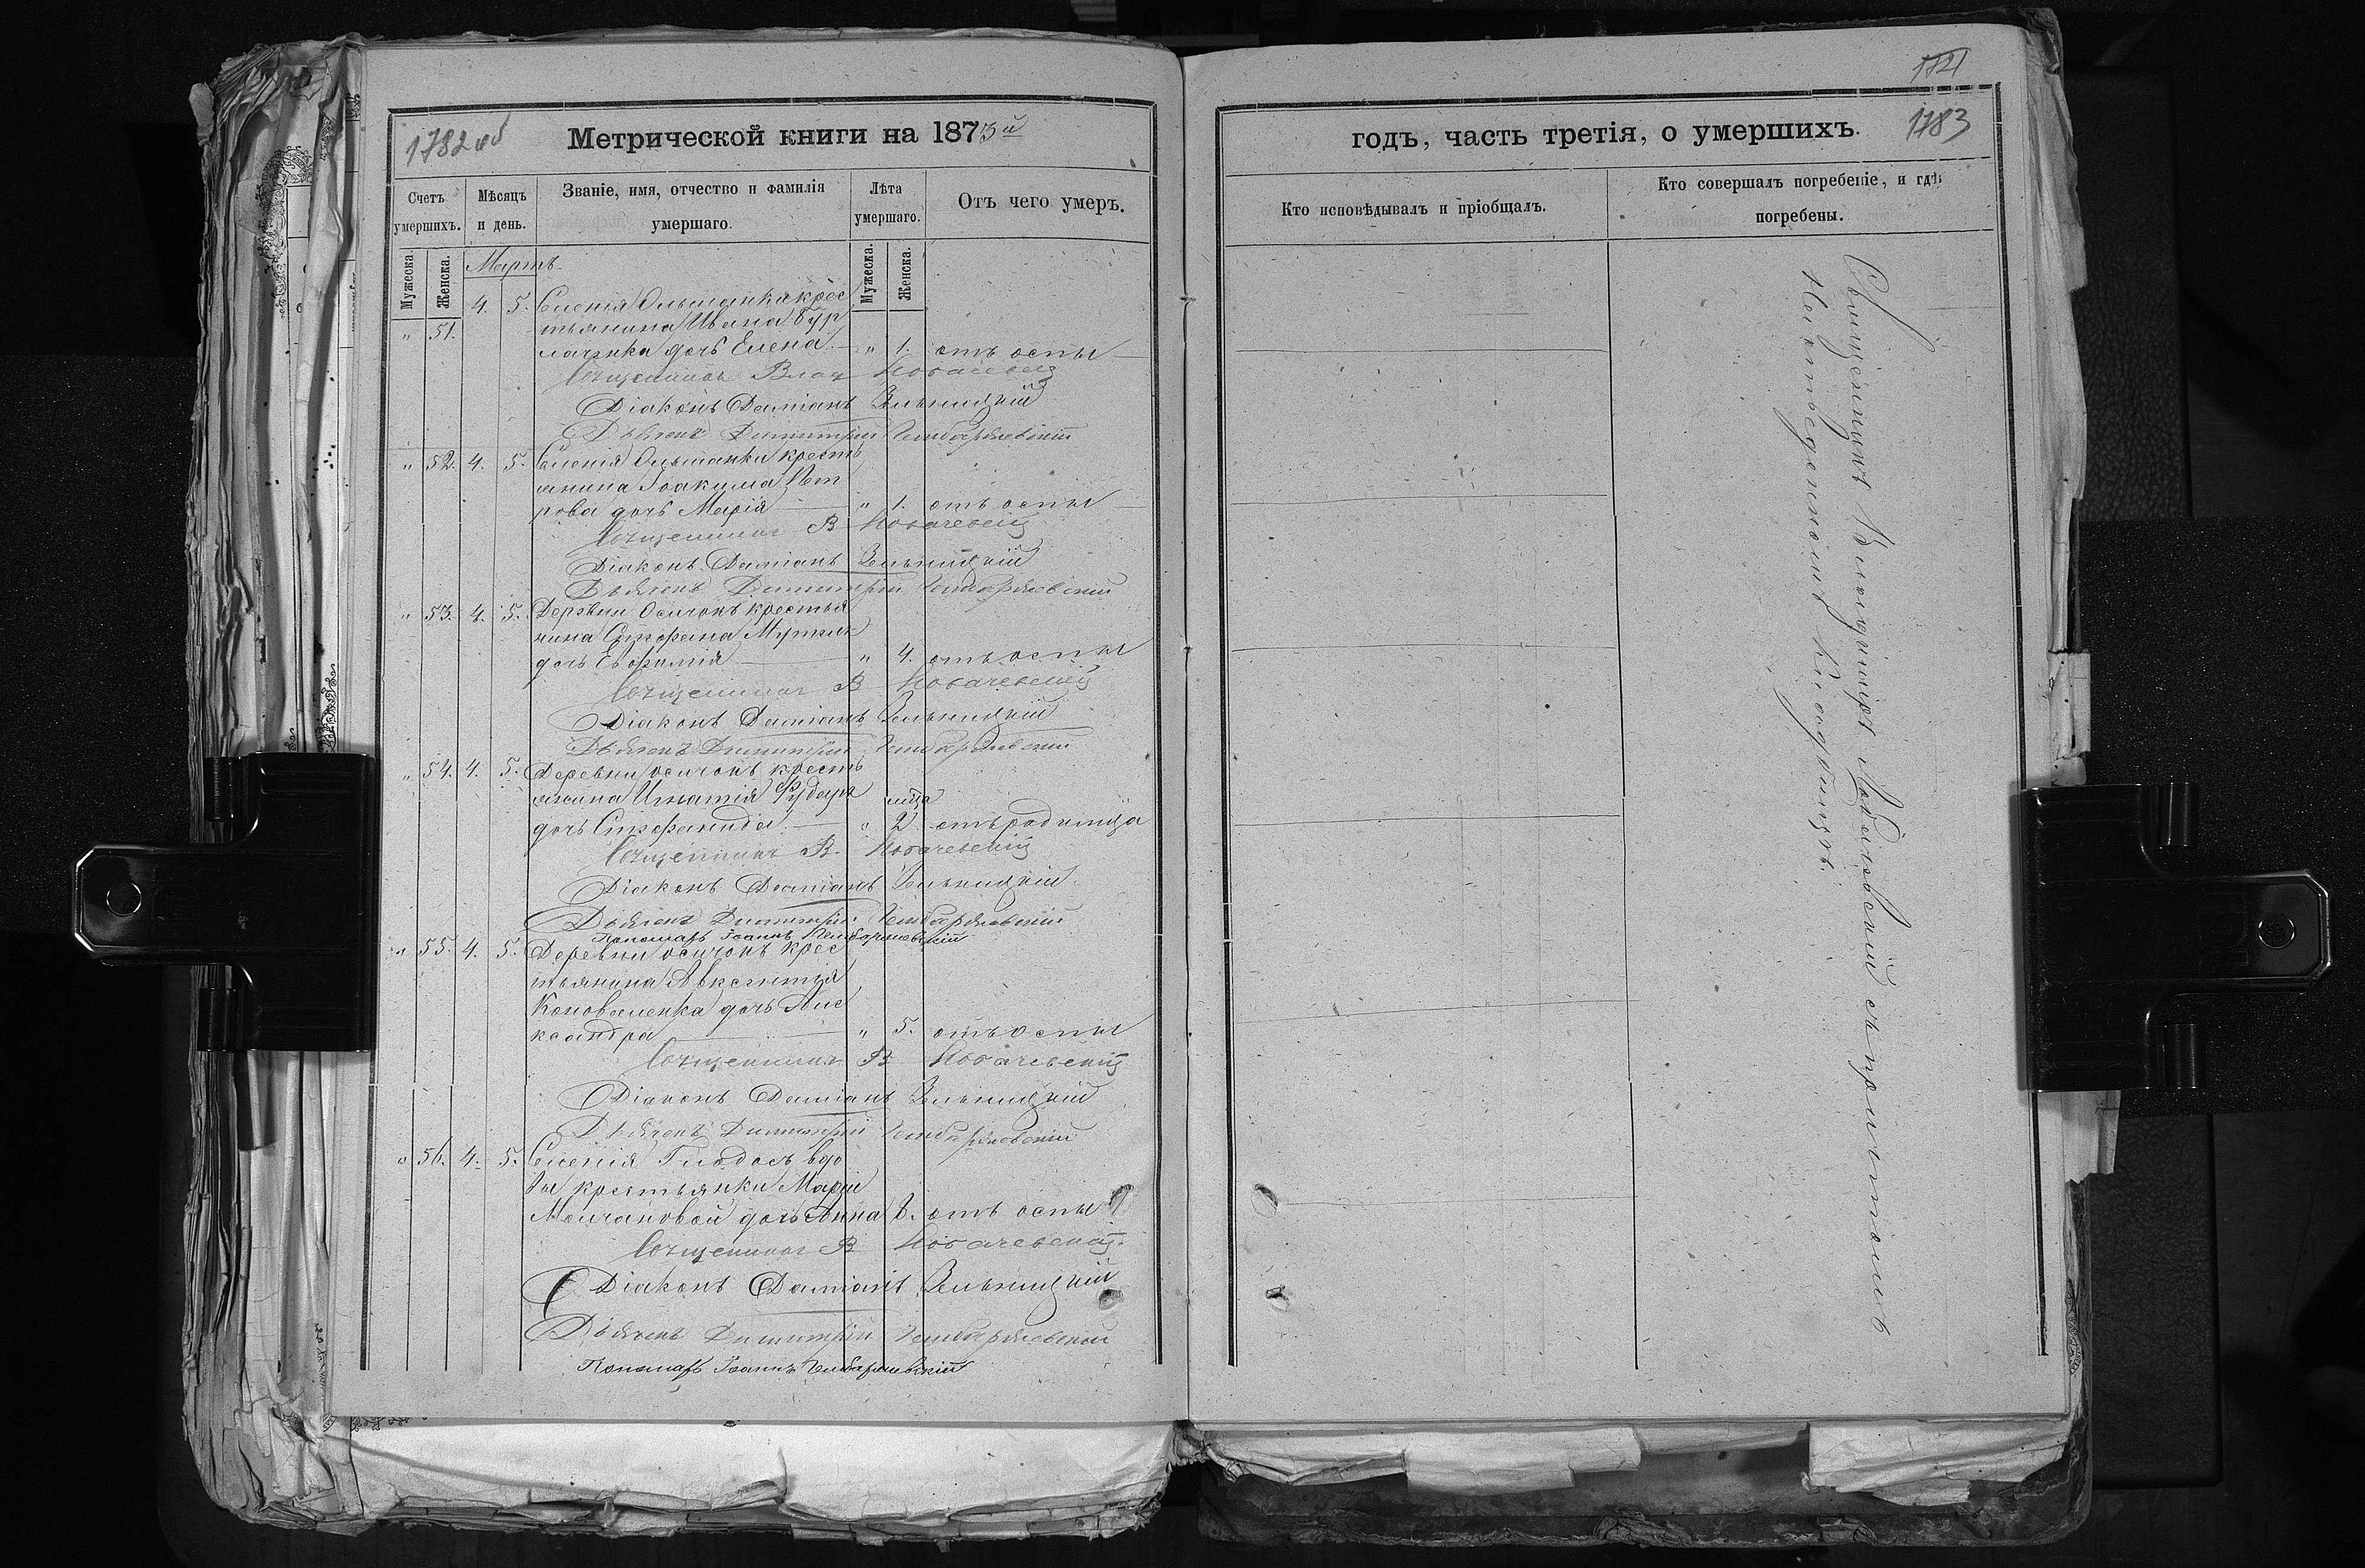 1782 об
Метрической книги на 1873й
Счетъ умершихъ.
Мѣсяцъ и день.
Званіе, имя, отчество и фамилія умершаго.
Лѣта умершаго.
Отъ чего умеръ.
Мужеска.
Женска.
Мартъ
Мужеска.
Женска.
" 51. 4. 5. Селенія Ольшанки крес
тьянина Ивана Бур
лаченка дочь Елена — " 1. отъ оспы
Священникъ Влад Новачевскій
Діаконъ Даміанъ Зельницкій
Дьячекъ Димитрій
" 52. 4. 5. Селенія Ольшанки кресть
янина Іоакима Пет
рова дочь Марія — " 1. отъ оспы
Священникъ В Новачевскій
Діаконъ Даміанъ Зельницкій
Дьячекъ Димитрій
" 53. 4. 5. Деревни Осичокъ крестья
нина Стефана
дочь Евфимія — " 4. отъ оспы
Священникъ В Новачевскій
Діаконъ Даміанъ Зельницкій
Дьячекъ Димитрій
" 54. 4. 5. Деревни Осичокъ кресть
янина Игнатія мца
дочь Стефанида — " 2 отъ родимца
Священникъ В. Новачевскій
Діаконъ Даміанъ Зельницкій
Дьячекъ Димитрій
Пономарь Іоаннъ
" 55. 4. 5. Деревни Осичокъ крес
тьянина Авксентія
Коноваленка дочь Алек
ксандра — " 5. отъ оспы
Священникъ В Новачевскій
Діаконъ Даміанъ Зельницкій
Дьячекъ Димитрій
" 56. 4. 5. Селенія Глодосъ вдо
вы крестьянки Маріи
Молчановой дочь Анна 8. отъ оспы
Священникъ В Новачевскій
Діаконъ Даміанъ Зельницкій
Дьячекъ Димитрій
Пономарь Іоаннъ
1783
годъ, часть третія, о умершихъ.
Кто исповѣдывалъ и пріобщалъ.
Кто совершалъ погребеніе, и гдѣ погребены.
Священникъ Владиміръ Новачевскій съ причтомъ
На отведенномъ кладбищѣ.